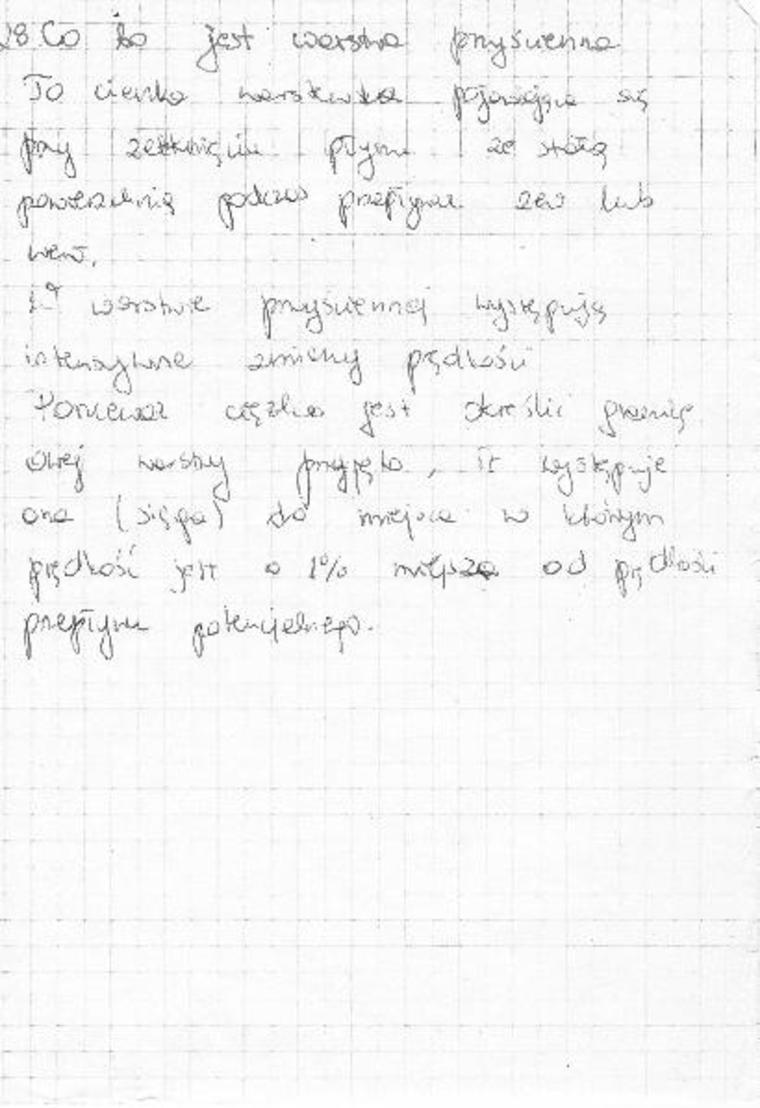 28 Co to jest warstwa przyścienna
To cienka warstewka pojawiająca się
przy zetknięciu płynu ze stałą
powierzchnią podczas przepływu zew lub
wew.
W warstwie przyściennej występują
intensywne zmiany prędkości
Ponieważ ciężko jest określić granicę
owej warstwy przyjęto, iż występuje
ona (sięga) do miejsca w którym
prędkość jest o 1% mniejsza od prędkości
przepływu potencjalnego.